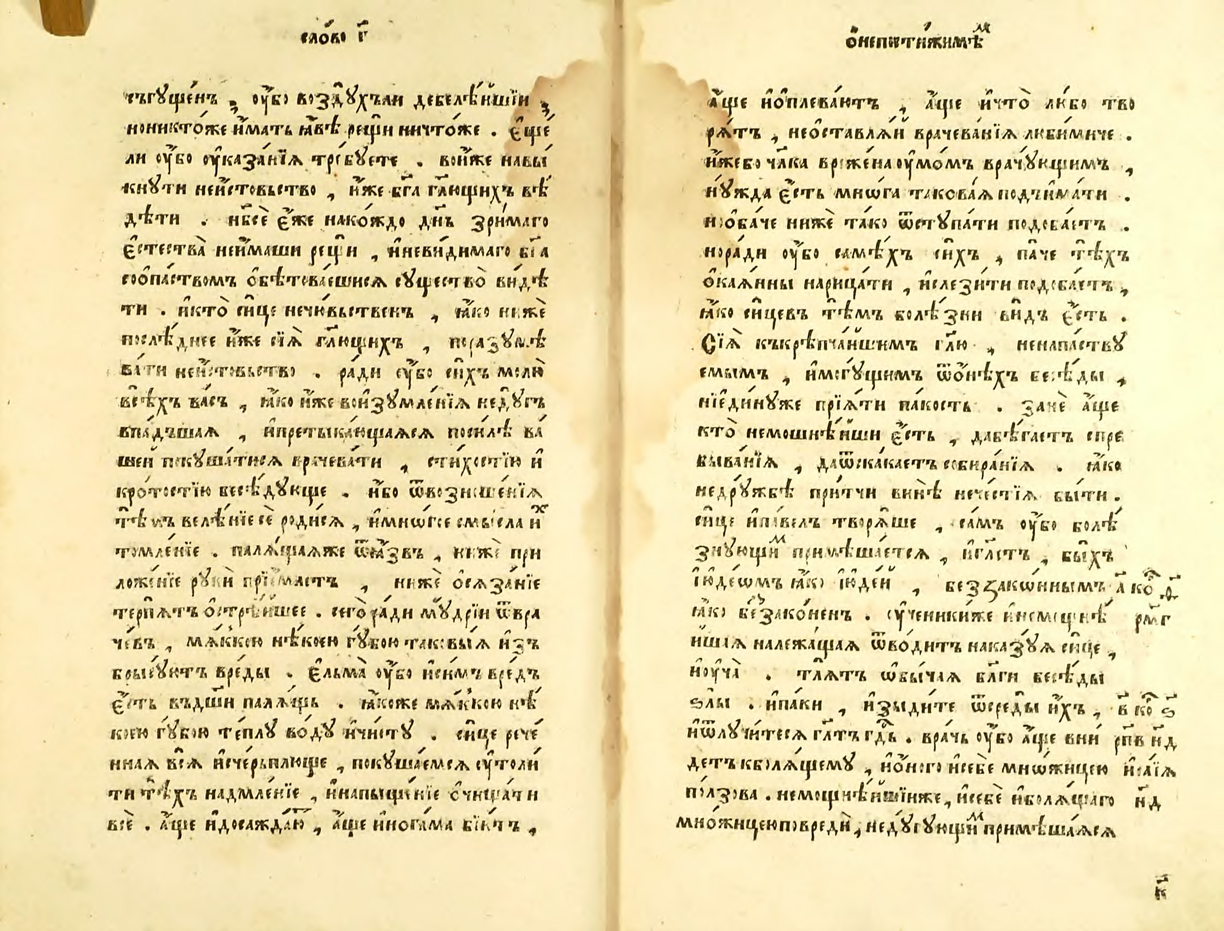 сло́во г҃
съгꙋще́нъ , ᲂу҆́бо во́здꙋхъли дебелѣ́йшїи ,
нониктоже и҆́мать ꙗ҆́вѣ рещѝ ничто́же . є҆ще́
ли ᲂу҆́бо ᲂу҆каза́нїѧ тре́бꙋете . во́нже навы́
кнꙋти неи́стовьство , и҆́же бг҃а гл҃ющихъ вѣ́
дѣти . нб҃се є҆́же нако́ждо дн҃ь зри́маго
є҆стества̀ неи́маши рещѝ , и҆неви́димаго бг҃а
соо́паствомъ ѻ҆бѣ́товаєшисѧ сꙋщество̀ ви́дѣ
ти . и҆кто̀ си́це нечю́вьственъ , ꙗ҆́ко ниже
послѣ́днее и҆́же сїѧ̀ гл҃ющихъ , поразꙋмѣ
ва́ти неи́стовьство . ра́ди ᲂу҆́бо си́хъ молю̀
всѣ́хъ ва́съ , ꙗ҆́ко и҆́же воизꙋмле́нїѧ недꙋ́гъ
впа́дъшаѧ , и҆претыка́ющаѧсѧ поси́лѣ ва́
шей покꙋша́тисѧ врачева́ти , сти́хостїю и҆
кро́тостїю бесѣ́дꙋюще . и҆́бо ѿвозноше́нїѧ
тѣ́мъ велѣ́нїе сѐ роди́сѧ , и҆мно́гое смы́сла и҆́х
томле́нїе . палѧ́щаѧже ꙗ҆́звъ , ниже при
ложе́нїе рꙋкѝ прїе́млетъ , ниже ѻ҆сѧза́нїе
терпѧ́тъ ѻ҆стрѣ́йшее . сего̀ ра́ди мꙋ́дрїи ѿвра
че́въ , мѧ́ккою нѣ́коею гꙋ́бою таковы́ѧ и҆́зъ
брыꙋютъ вре́ды . є҆льма̀ ᲂу҆́бо и҆си́мъ вре́дъ
є҆́сть въдш҃и палѧ́щь . ꙗ҆́коже мѧ́ккою нѣ́
коею гꙋ́бою те́плꙋ во́дꙋ и҆чи́стꙋ . си́це рече́
ннаѧ всѧ̀ и҆счерьплюще , покꙋша́емсѧ ᲂу҆толи
ти тѣ́хъ надмле́нїе , и҆напыще́нїе ѻ҆чища́ти
всѐ . а҆́ще и҆досажда́ю , а҆́ще и҆нога́ма бїю́тъ ,
ѻ҆непости́жимѣм
а҆́ще и҆ѻплева́ютъ , а҆́ще и҆что̀ ли́бо тво
рѧ́тъ , неѻставлѧ́й врачева́нїѧ люби́миче .
и҆́жебо чл҃ка врежена ᲂу҆мо́мъ врачꙋ́ющимъ ,
нꙋ́жда є҆́сть мно́га такова́ѧ подъи́мати .
и҆ѻба́че нижѐ та́ко ѿстꙋпа́ти подоба́етъ .
но́ради ᲂу҆́бо самѣ́хъ си́хъ , па́че тѣ́хъ
ѻ҆каѧ́нны нарица́ти , и҆слези́ти подоба́етъ ,
ꙗ҆́ко си́цевъ тѣ́мъ болѣ́зни ви́дъ є҆́сть .
Сїѧ̀ къкрѣпча́йшимъ гл҃ю , ненапа́ствꙋ
емымъ , и҆могꙋ́щимъ ѿо́нѣхъ бесѣ́ды ,
ниеди́нꙋже прїѧ́ти па́кость . занѐ а҆́ще
кто̀ немощнѣ́йши є҆́сть , дабѣ́гаетъ спре
быва́нїѧ , даѿска́каетъ собира́нїѧ . ꙗ҆́ко
недрꙋ́жбѣ при́тчи ви́нѣ нече́стїѧ бы́ти .
си́це и҆па́велъ творѧ́ше , са́мъ ᲂу҆́бо болѣ́
знꙋющим примѣша́етсѧ , и҆гл҃етъ , бы́хъ
і҆ꙋде́ѡмъ ꙗ҆́ко і҆ꙋде́й , беззако́ннымъ
ꙗ҆́ко беззако́ненъ . ᲂу҆ченики́же и҆немощнѣ́
йшаѧ належа́щаѧ ѿво́дитъ наказꙋ́ѧ си́це ,
и҆ᲂу҆ча̀ . тлѧ́тъ ѻ҆бы́чаѧ бл҃ги бесѣ́ды
ѕлы̀ . и҆па́ки , и҆зыди́те ѿсреды̀ и҆́хъ ,
и҆ѿлꙋчи́тесѧ гл҃етъ гдⷭ҇ь . вра́чь ᲂу҆́бо а҆́ще вни́
детъ кболѧ́щемꙋ , и҆ѻного̀ и҆себѐ мно́жицею
по́лзова . немощнѣ́йшїиже , и҆себѐ и҆болѧ́щаго
мно́жицеюповредѝ , недꙋ́гꙋющим примѣша́ѧсѧ
а҃ ко ѳ҃
рм҃г
в҃ ко ѕ҃
рп҃в н҃д
и҆са́їѧ
н҃д
к҃